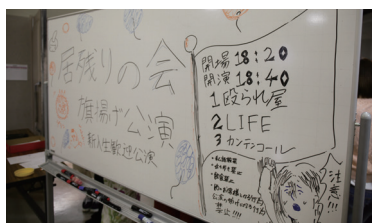 居残りの会
旗揚げ公演
新入生歓迎公演
開場 18:20
開演 18:40
1 殴られ屋
2 LIFE
3 カンテンコール
・私語厳禁
・飲食禁止
禁止!!!!
注意!!!